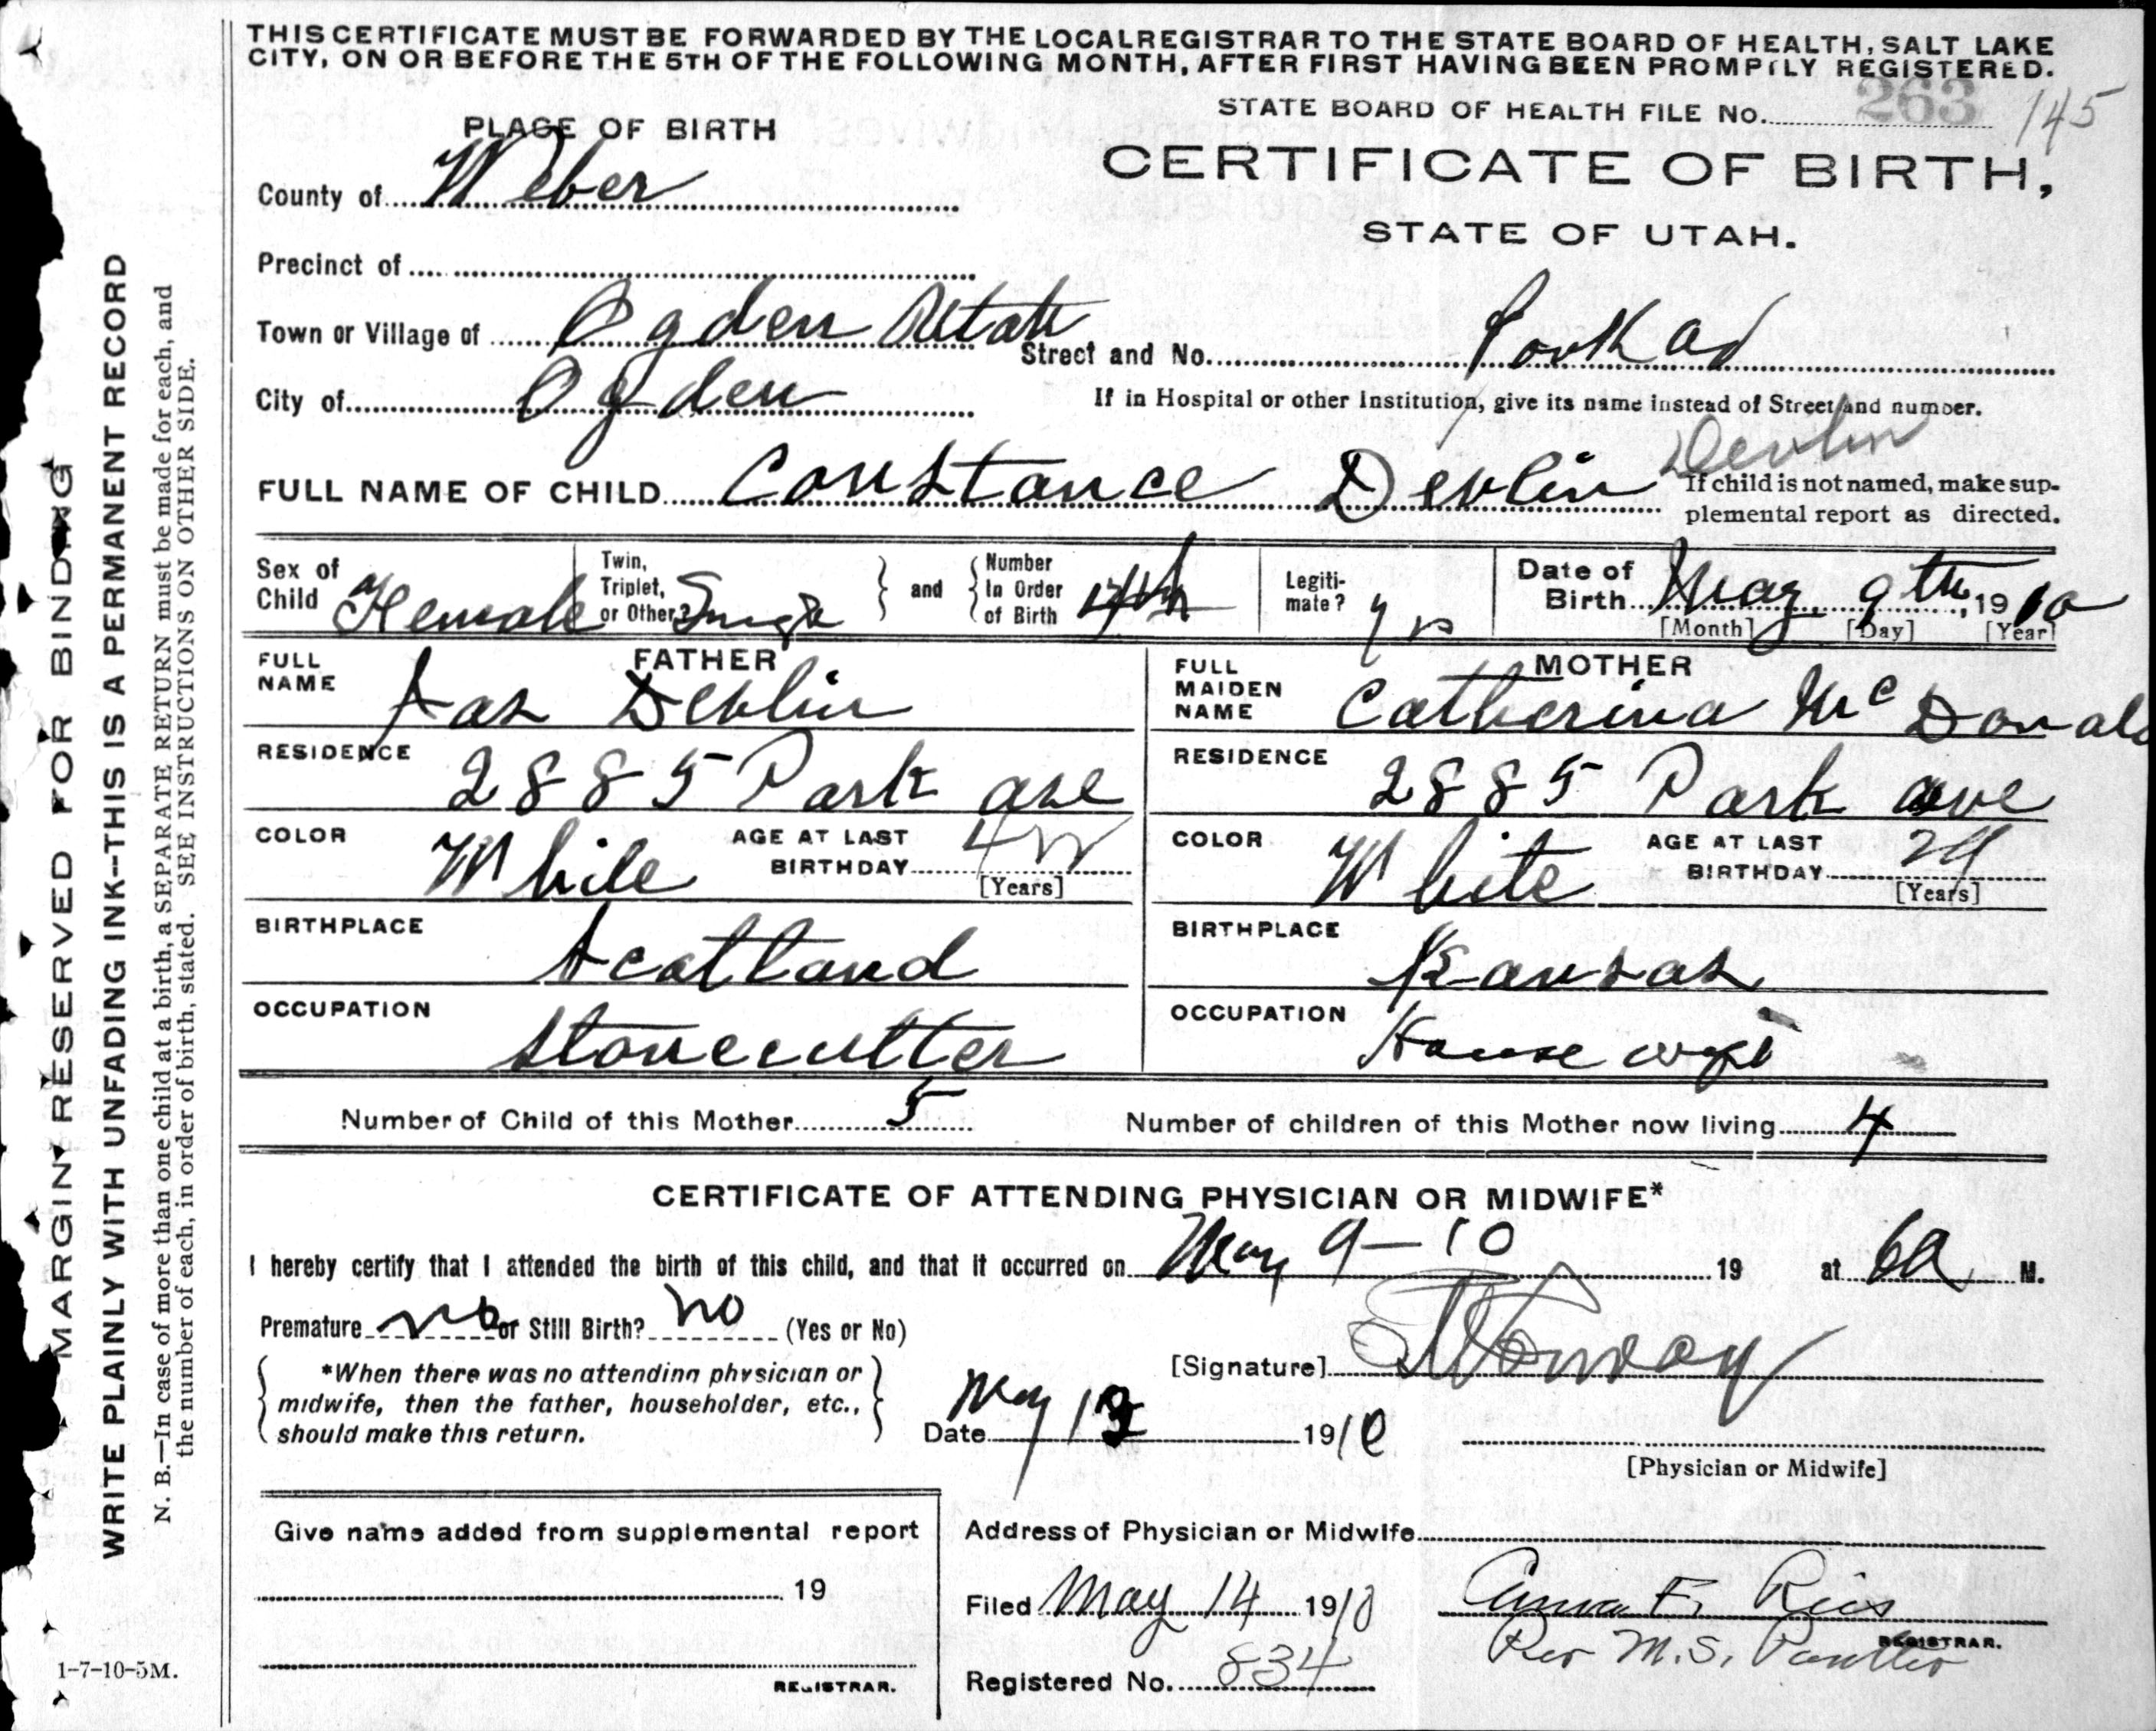 THIS CERTIFICATE MUST BE FORWARDED BY THE LOCAL REGISTRAR TO THE STATE BOARD OF HEALTH, SALT LAKE
CITY, ON OR BEFORE THE 5TH OF THE FOLLOWING MONTH, AFTER FIRST HAVING BEEN PROMPTLY REGISTERED.
STATE BOARD OF HEALTH FILE No. 263 145
PLACE OF BIRTH
CERTIFICATE OF BIRTH,
STATE OF UTAH.
County of Weber
Precinct of
Town or Village of Ogden Utah
Street and No.
City of Ogden
If in Hospital or other Institution, give its name instead of Street and number.
Devlin
FULL NAME OF CHILD Constance Devlin
If child is not named, make sup-
plemental report as directed.
Sex of Child Female
Twin, Triplet, or Other? Single
and
Number In Order of Birth 4th
Legiti-mate?
Date of Birth May 9th, 1910
[Month] [Day] [Year]
FATHER
FULL NAME Jas Devlin
RESIDENCE 2885 Park ave
COLOR White
AGE AT LAST BIRTHDAY
[Years]
BIRTHPLACE Scotland
OCCUPATION Stonecutter
MOTHER
FULL MAIDEN NAME Catherina McDonald
RESIDENCE 2885 Park ave
COLOR White
AGE AT LAST BIRTHDAY 29
[Years]
BIRTHPLACE Kansas
OCCUPATION House wife
Number of Child of this Mother 5
Number of children of this Mother now living 4
CERTIFICATE OF ATTENDING PHYSICIAN OR MIDWIFE*
I hereby certify that I attended the birth of this child, and that it occurred on May 9-10 19 at 6a M.
Premature no or Still Birth? no (Yes or No)
*When there was no attending physician or
midwife, then the father, householder, etc.,
should make this return.
[Signature]
Date May 13 1910
[Physician or Midwife]
Give name added from supplemental report
19
REGISTRAR.
Address of Physician or Midwife
Filed May 14 1910
Anna F. Ries
REGISTRAR.
Per M.S.
Registered No. 834
1-7-10-5M.
MARGIN RESERVED FOR BINDING
WRITE PLAINLY WITH UNFADING INK--THIS IS A PERMANENT RECORD
N. B.—In case of more than one child at a birth, a SEPARATE RETURN must be made for each, and
the number of each, in order of birth, stated. SEE INSTRUCTIONS ON OTHER SIDE.